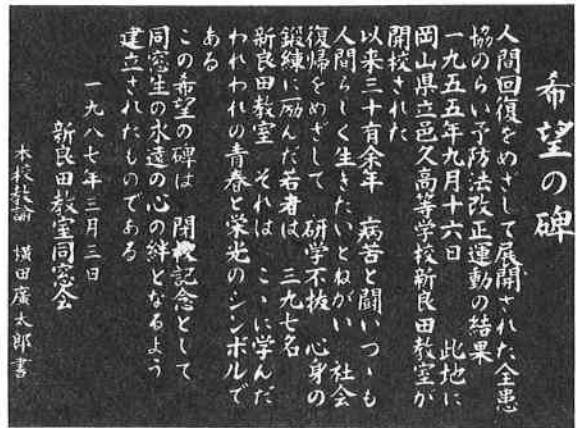 希望の碑
人間回復をめざして展開された全患
協のらい予防法改正運動の結果
一九五五年九月十六日　此地に
岡山県立邑久高等学校新良田教室が
開校された
以来三十有余年　病苦と闘いつゝも
人間らしく生きたいとねがい　社会
復帰をめざして　研学不抜　心身の
鍛練に励んだ若者は　三九七名
新良田教室　それは　こゝに学んだ
われわれの青春と栄光のシンボルで
ある
この希望の碑は　開校記念として
同窓生の永遠の心の絆となるよう
建立されたものである
一九八七年三月三日
新良田教室同窓会
本校教諭　横田廣太郎書